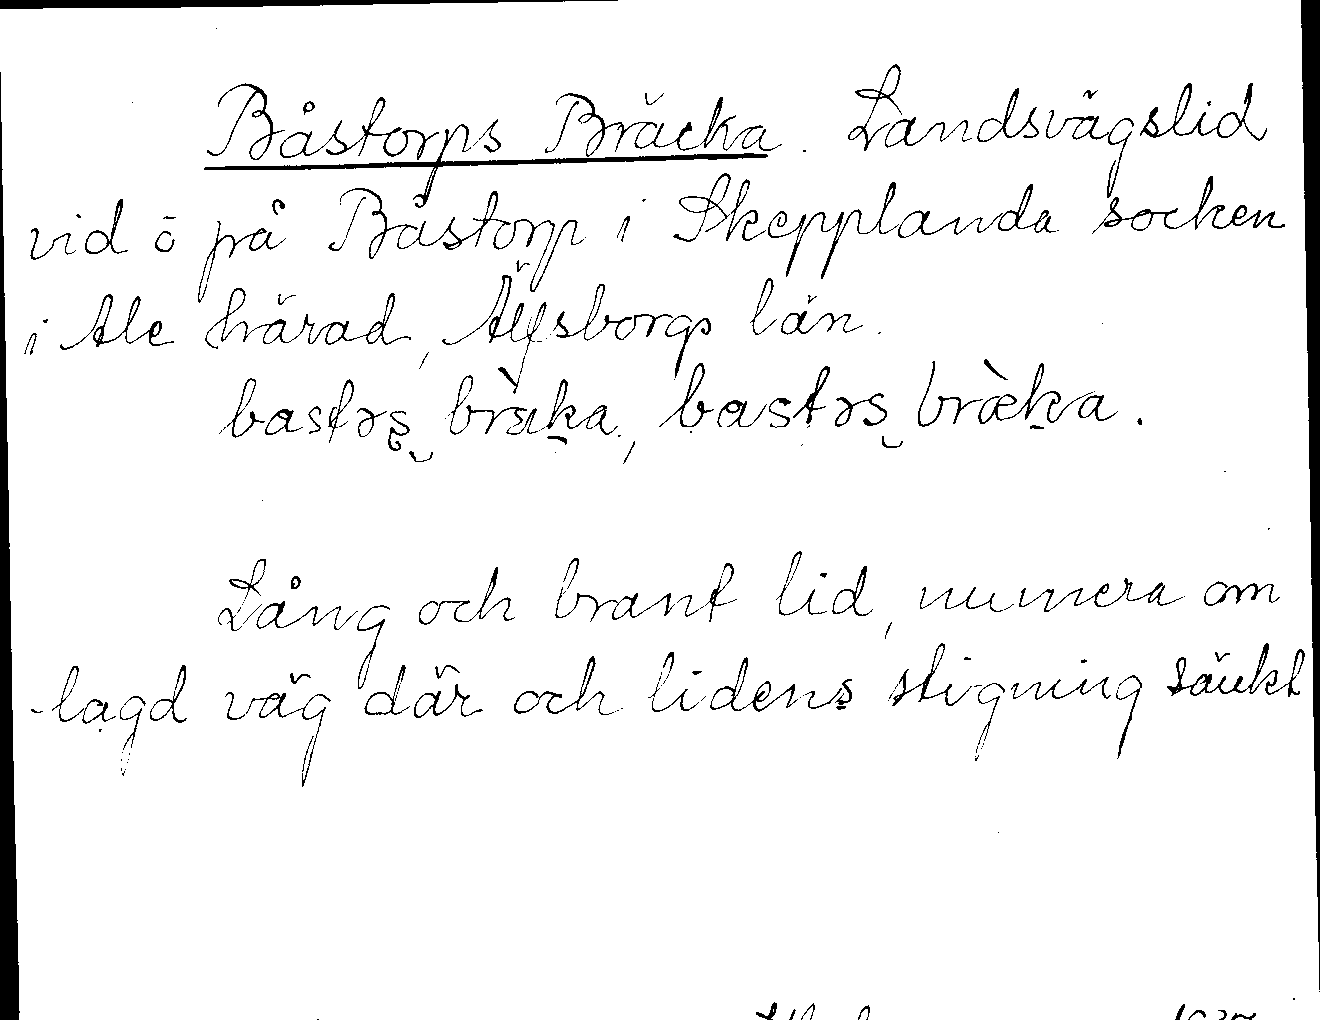 Båstorps Bräcka. Landsvägslid
vid ō på Båstorp i Skepplanda socken
i Ale härad, Älfsborgs län.
bastəs̬ bràka, bastəs bràka.
Lång och brant lid, numera om
-lagd väg där och lidens stigning sänkt